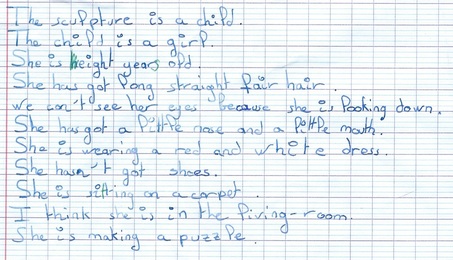 The sculpture is a child.
The child is a girl.
She is height years old.
She has got long straight fair hair.
we can't see her eyes because she is looking down.
She has got a little nose and a little mouth.
She is wearing a red and white dress.
She hasn't got shoes.
She is sitting on a carpet.
I think she is in the living-room.
She is making a puzzle.